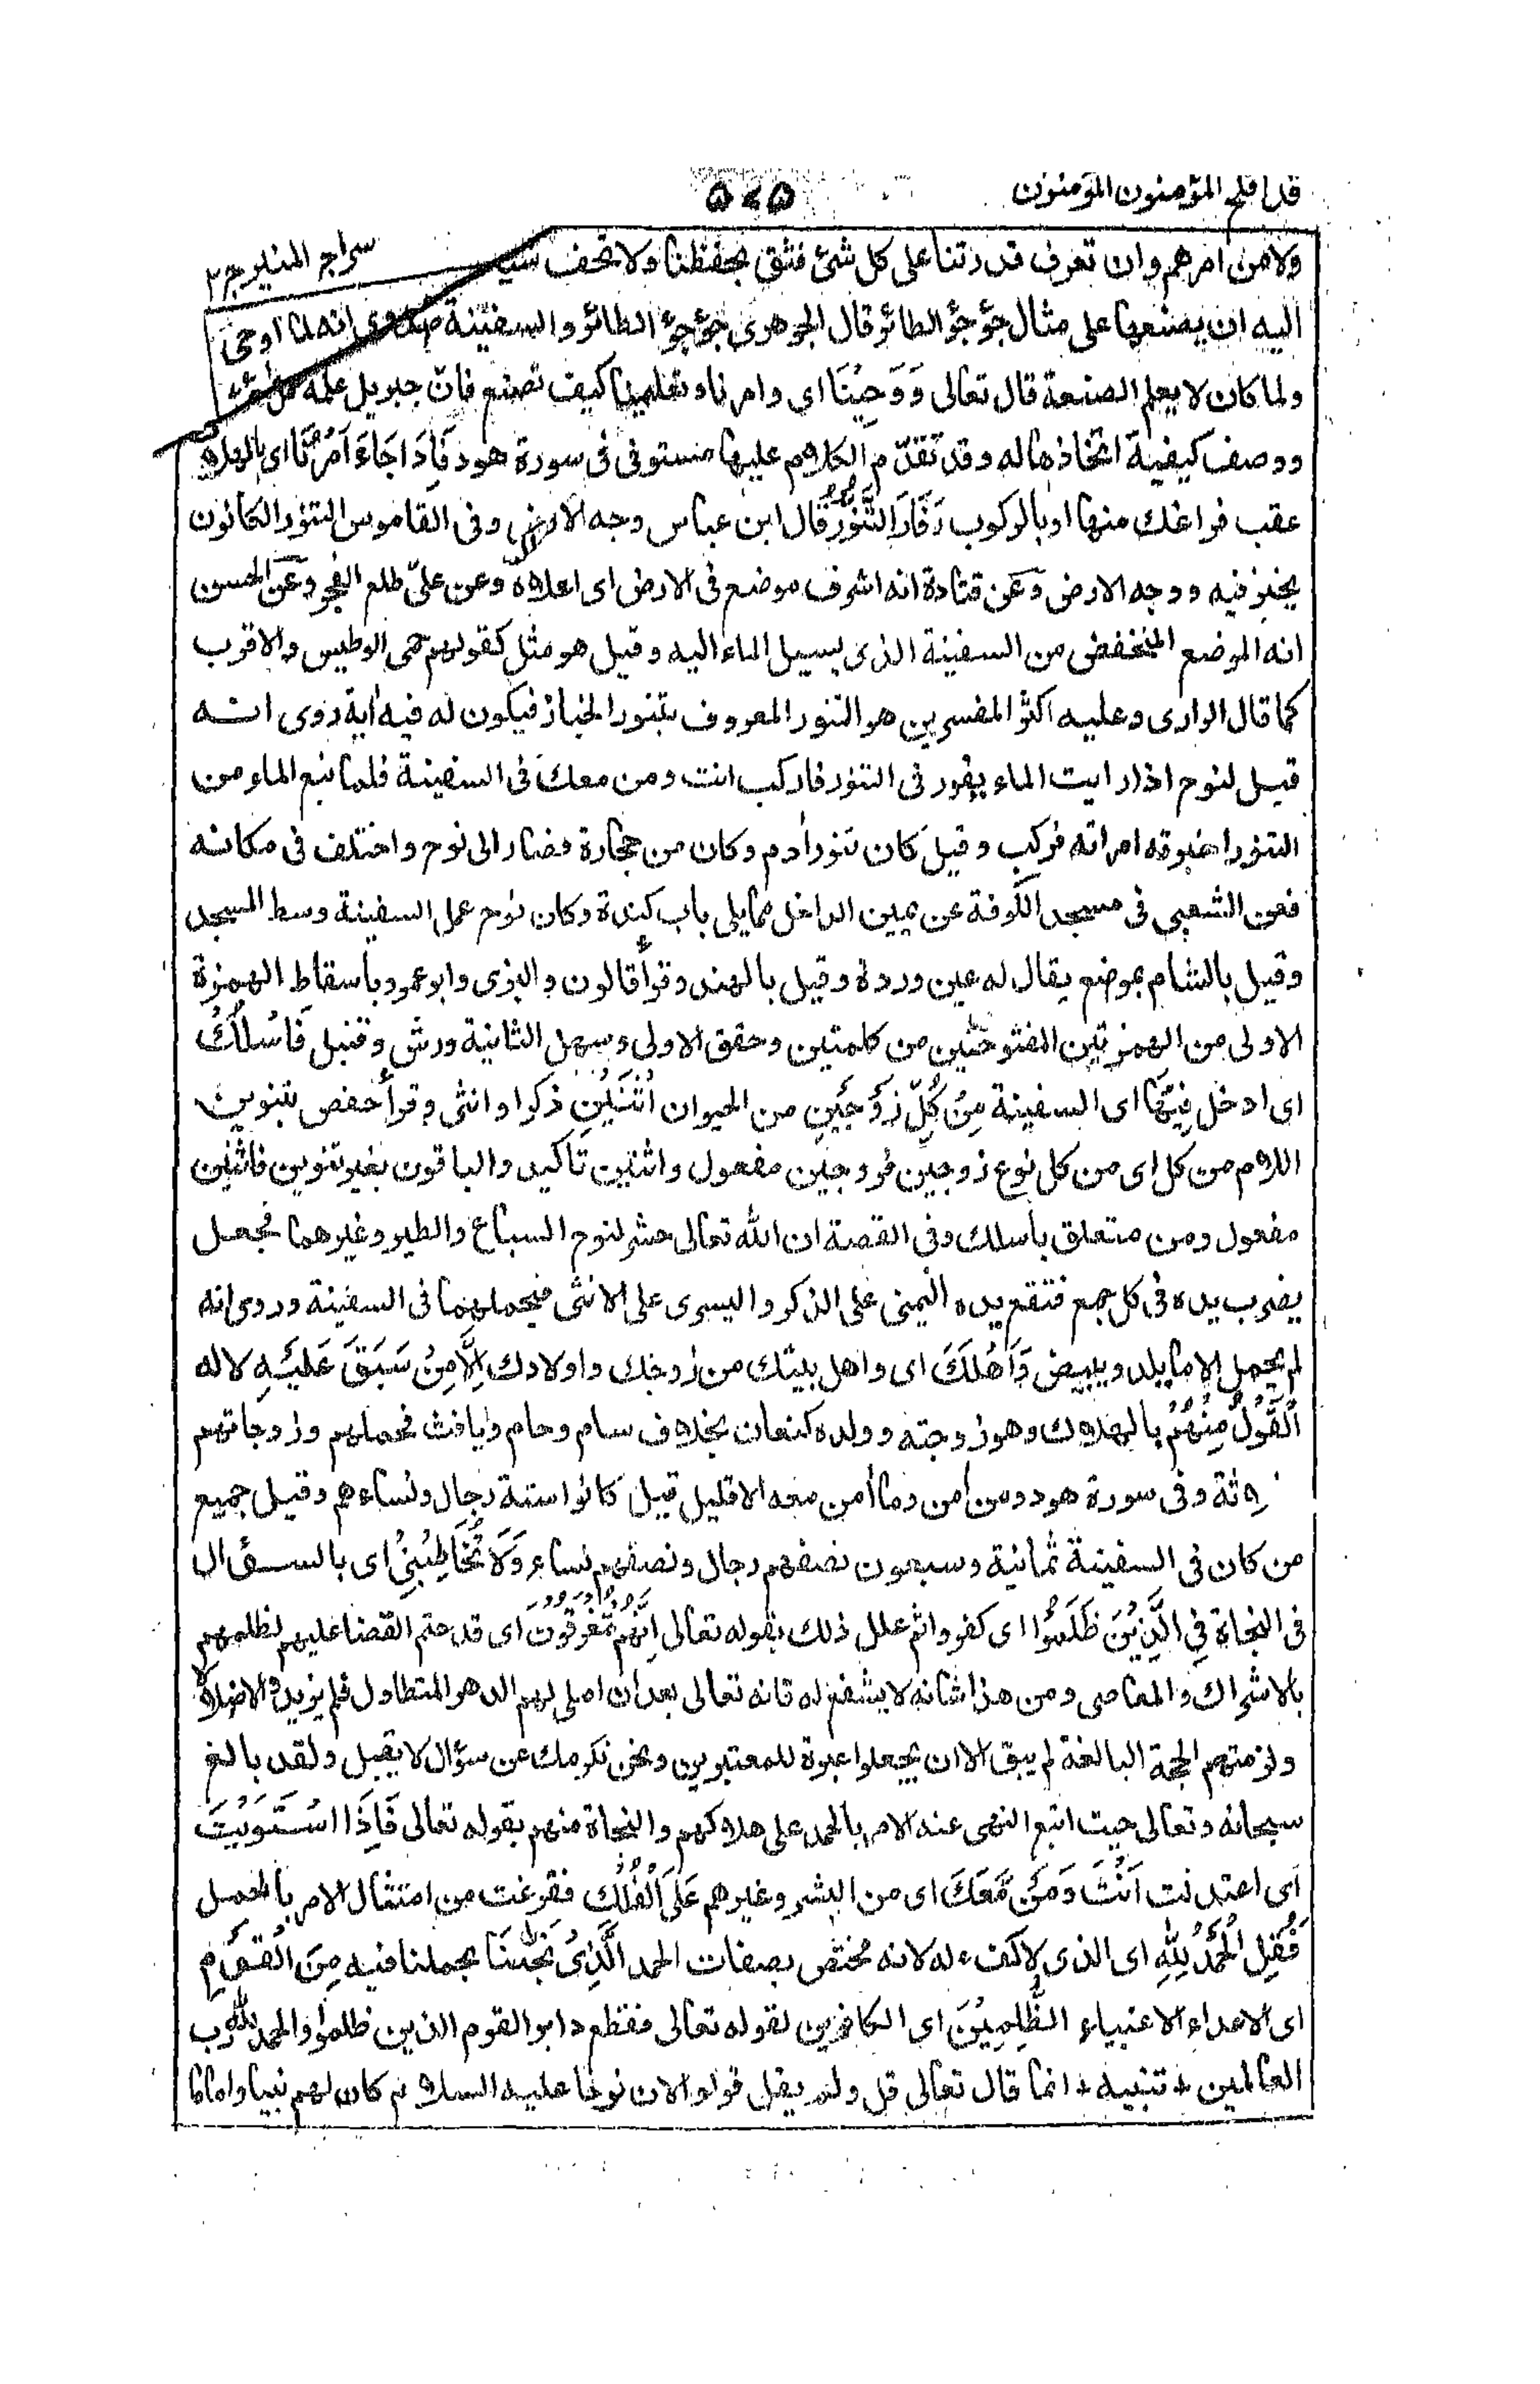 قد افلح المؤمنون المؤمنون
۵۷۵
سراج المنير ج ۲
ولا من امرهم وان تعرف قدرتنا على كل شئ فثق بحفظنا ولا تخف شيـ
اليه ان يصنعها على مثال جؤجؤ الطائر قال الجوهرى جؤجؤ الطائر والسفينة صدر روى انه لما اوحى
ولما كان لا يعلم الصنعة قال تعالى وَوَحْيِنَا اى وامرنا وتعليمنا كيف تصنع فان جبريل علمه عمل
ووصف كيفية اتخاذها له وقد تقدّم الكلام عليها مستوفى فى سورة هود فَاِذَا جَاءَ اَمْرُنَا اى بالهلاك
عقب فراغك منها او بالركوب وَفَارَ التَّنُّوْرُ قال ابن عباس وجه الارض وفى القاموس التنور الكانون
يخبز فيه ووجه الارض وعن قتادة انه اشرف موضع فى الارض اى اعلاه وعن علىّ طلع الفجر وعن الحسن
انه الموضع المنخفض من السفينة الذى يسيل الماء اليه وقيل هو مثل كقولهم حمى الوطيس والاقرب
كما قال الرازى وعليه اكثر المفسرين هو التنور المعروف بتنور الخباز فيكون له فيه أية روى انـه
قيل لنوح اذا رايت الماء يفور فى التنور فاركب انت ومن معك فى السفينة فلما نبع الماء من
التنور اخبرته امراته فركب وقيل كان تنور أدم وكان من حجارة فصار الى نوح واختلف فى مكانه
فعن الشعبى فى مسجد الكوفة عن يمين الداخل مما يلى باب كندة وكان نوح عمل السفينة وسط المسجد
وقيل بالشام بموضع يقال له عين وردة وقيل بالهند وقرأ قالون والبزى وابو عمرو باسقاط الهمزة
الاولى من الهمزتين المفتوحتين من كلمتين وحقق الاولى وسهل الثانية ورش وقنبل فَاسْلُكْ
اى ادخل فِيْهَا اى السفينة مِنْ كُلِّ زَوْجَيْنِ من الحيوان اثْنَيْنِ ذكرا وانثى وقرأ حفص بتنوين
اللام من كل اى من كل نوع زوجين فزوجين مفعول واثنين تاكيد والباقون بغير تنوين فاثنين
مفعول ومن متعلق باسلك وفى القصة ان الله تعالى حشر لنوح السباع والطير وغيرهما فجعل
يضرب بيده فى كل جمع فتقع يده اليمنى على الذكر واليسرى على الانثى فيحملهما فى السفينة وروى انه
لم يحمل الا ما يلد ويبيض وَاَهْلَكَ اى واهل بيتك من زوجك واولادك اِلَّا مَنْ سَبَقَ عَلَيْهِ لا له
الْقَوْلُ مِنْهُمْ بالهلاك وهو زوجته وولده كنعان بخلاف سام وحام ويافث فحملهم وزوجاتهم
وفى سورة هود ومن أمن وما أمن معه الا قليل قيل كانوا ستة رجال ونساءهم وقيل جميع
من كان فى السفينة ثمانية وسبعون نصفهم رجال ونصفهم نساء وَلَا تُخَاطِبْنِيْ اى بالسؤال
فى النجاة فِي الَّذِيْنَ ظَلَمُوْا اى كفروا ثم علل ذلك بقوله تعالى اِنَّهُمْ مُّغْرَقُوْنَ اى قد حتم القضا عليهم لظلمهم
بالاشراك والمعاصى ومن هذا شانه لا يشفع له فانه تعالى بعد ان املى لهم الدهر المتطاول فلم يزيدوا الا ضلالا
ولزمتهم الحجة البالغة لم يبق الا ان يجعلوا عبرة للمعتبرين ونحن نكرمك عن سؤال لا يقبل ولقد بالغ
سبحانه وتعالى حيث اتبع النهى عنه الامر بالحمد على هلاكهم والنجاة منهم بقوله تعالى فَاِذَا اسْتَوَيْتَ
اى اعتدلت اَنْتَ وَمَنْ مَّعَكَ اى من البشر وغيرهم عَلَى الْفُلْكِ ففرغت من امتثال الامر بالحمل
فَقُلِ الْحَمْدُ لِلّٰهِ اى الذى لا كفء له لانه مختص بصفات الحمد الَّذِيْ نَجّٰنَا بحملنا فيه مِنَ الْقَوْمِ
اى الاعداء الاغبياء الظّٰلِمِيْنَ اى الكافرين لقوله تعالى فقطع دابر القوم الذين ظلموا والحمد لله رب
العالمين * تنبيه * انما قال تعالى قل ولم يقل قولوا لان نوحا عليه السلام كان لهم نبيا واماما